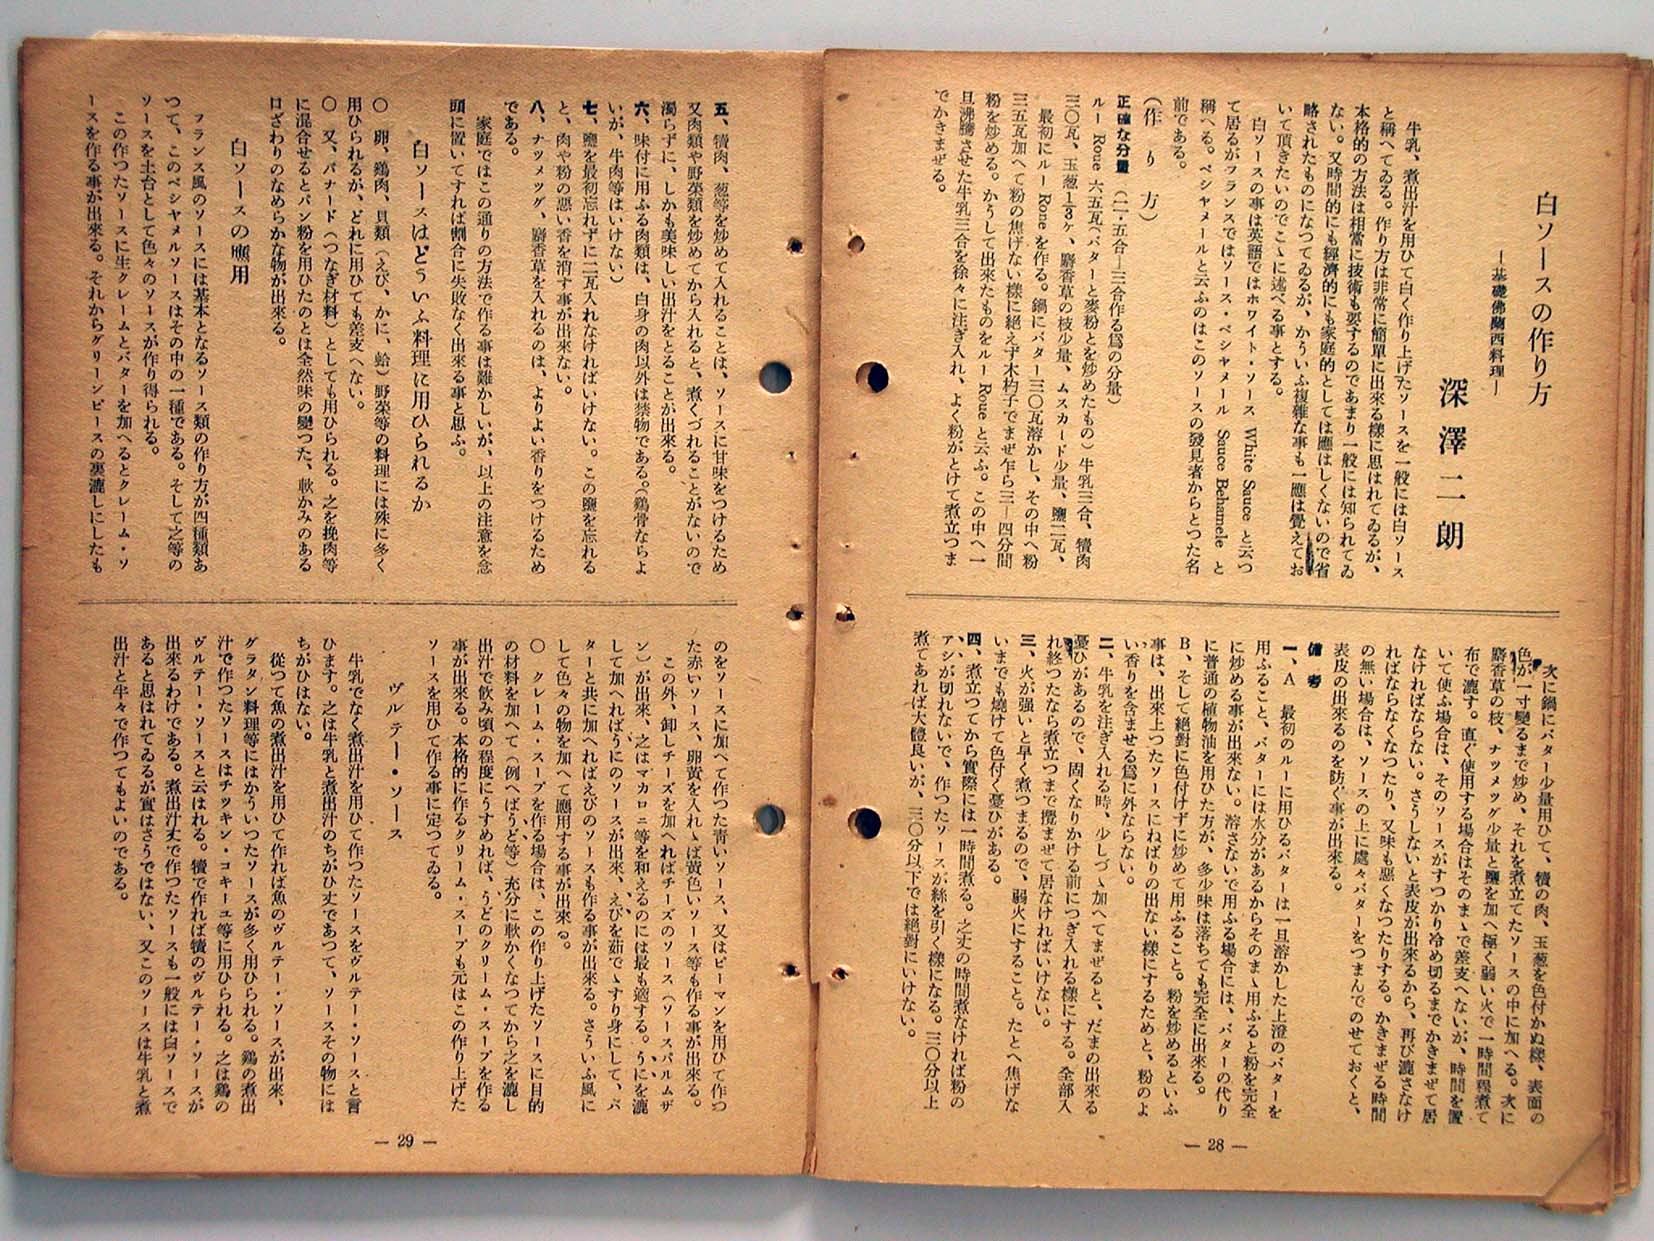 白ソースの作り方
―基礎佛蘭西料理―
深澤二朗
牛乳、煮出汁を用ひて白く作り上げたソースを一般には白ソース
と稱へてゐる。作り方は非常に簡單に出來る樣に思はれてゐるが、
本格的の方法は相當に技術も要するのであまり一般には知られてゐ
ない。又時間的にも經濟的にも家庭的としては應はしくないので省
略されたものになつてゐるが、かういふ複雜な事も一應は覺えてお
いて頂きたいのでこゝに述べる事とする。
白ソースの事は英語ではホワイト・ソース White Sauce と云つ
て居るがフランスではソース・ベシヤメール Sauce Behamele と
稱へる。ベシヤメールと云ふのはこのソースの發見者からとつた名
前である。
(作り方)
正確な分量(二・五合―三合作る爲の分量)
ルー Roue 六五瓦(バターと麥粉とを炒めたもの)牛乳三合、犢肉
三〇瓦、玉葱1/3ヶ、麝香草の枝少量、ムスカード少量、鹽二瓦、
最初にルー Roue を作る。鍋にバター三〇瓦溶かし、その中へ粉
三五瓦加へて粉の焦げない樣に絕えず木杓子でまぜ乍ら三―四分間
粉を炒める。かうして出來たものをルー Roue と云ふ。この中へ一
旦沸騰させた牛乳三合を徐々に注ぎ入れ、よく粉がとけて煮立つま
でかきまぜる。
次に鍋にバター少量用ひて、犢の肉、玉葱を色付かぬ樣、表面の
色が一寸變るまで炒め、それを煮立てたソースの中に加へる。次に
麝香草の枝、ナツメツグ少量と鹽を加へ極く弱い火で一時間程煮て
布で漉す。直ぐ使用する場合はそのまゝで差支へないが、時間を置
いて使ふ場合は、そのソースがすつかり冷め切るまでかきまぜて居
なければならない。さうしないと表皮が出來るから、再び漉さなけ
ればならなくなつたり、又味も惡くなつたりする。かきまぜる時間
の無い場合は、ソースの上に處々バターをつまんでのせておくと、
表皮の出來るのを防ぐ事が出來る。
備考
一、A 最初のルーに用ひるバターは一旦溶かした上澄のバターを
用ふること、バターには水分があるからそのまゝ用ふると粉を完全
に炒める事が出來ない。溶さないで用ふる場合には、バターの代り
に普通の植物油を用ひた方が、多少味は落ちても完全に出來る。
B、そして絕對に色付けずに炒めて用ふること。粉を炒めるといふ
事は、出來上つたソースにねばりの出ない樣にするためと、粉のよ
い香りを含ませる爲に外ならない。
二、牛乳を注ぎ入れる時、少しづゝ加へてまぜると、だまの出來る
憂ひがあるので、固くなりかける前につぎ入れる樣にする。全部入
れ終つたなら煮立つまで攪ませて居なければいけない。
三、火が强いと早く煮つまるので、弱火にすること。たとへ焦げな
いまでも燒けて色付く憂ひがある。
四、煮立つてから實際には一時間煮る。之丈の時間煮なければ粉の
アシが切れないで、作つたソースが絲を引く樣になる。三〇分以上
煮てあれば大體良いが、三〇分以下では絕對にいけない。
― 28 ―
五、犢肉、葱等を炒めて入れることは、ソースに甘味をつけるため
又肉類や野菜類を炒めてから入れると、煮くづれることがないので
濁らずに、しかも美味しい出汁をとることが出來る。
六、味付に用ふる肉類は、白身の肉以外は禁物である。(鷄骨ならよ
いが、牛肉等はいけない)
七、鹽を最初忘れずに二瓦入れなければいけない。この鹽を忘れる
と、肉や粉の惡い香を消す事が出來ない。
八、ナツメツグ、麝香草を入れるのは、よりよい香りをつけるため
である。
家庭ではこの通りの方法で作る事は難かしいが、以上の注意を念
頭に置いてすれば割合に失敗なく出來る事と思ふ。
白ソースはどういふ料理に用ひられるか
〇 卵、鷄肉、貝類(えび、かに、蛤)野菜等の料理には殊に多く
用ひられるが、どれに用ひても差支へない。
〇 又、パナード(つなぎ材料)としても用ひられる。之を挽肉等
に混合せるとパン粉を用ひたのとは全然味の變つた、軟かみのある
口ざわりのなめらかな物が出來る。
白ソースの應用
フランス風のソースには基本となるソース類の作り方が四種類あ
つて、このベシヤメルソースはその中の一種である。そして之等の
ソースを土台として色々のソースが作り得られる。
この作つたソースに生クレームとバターを加へるとクレーム・ソ
ースを作る事が出來る。それからグリーンピースの裏漉しにしたも
のをソースに加へて作つた靑いソース、又はピーマンを用ひて作つ
た赤いソース、卵黃を入れゝば黃色いソース等も作る事が出來る。
この外、卸しチーズを加へればチーズのソース(ソースパルムザ
ン)が出來、之はマカロニ等を和えるのには最も適する。うにを漉
して加へればうにのソースが出來、えびを茹でゝすり身にして、バ
ターと共に加へればえびのソースも作る事が出來る。さういふ風に
して色々の物を加へて應用する事が出來る。
〇 クレーム・スープを作る場合は、この作り上げたソースに目的
の材料を加へて(例へばうど等)充分に軟かくなつてから之を漉し
出汁で飮み頃の程度にうすめれば、うどのクリーム・スープを作る
事が出來る。本格的に作るクリーム・スープも元はこの作り上げた
ソースを用ひて作る事に定つてゐる。
ヴルテー・ソース
牛乳でなく煮出汁を用ひて作つたソースをヴルテー・ソースと言
ひます。之は牛乳と煮出汁のちがひ丈であつて、ソースその物には
ちがひはない。
從つて魚の煮出汁を用ひて作れば魚のヴルテー・ソースが出來、
グラタン料理等にはかういつたソースが多く用ひられる。鷄の煮出
汁で作つたソースはチツキン・コキーユ等に用ひられる。之は鷄の
ヴルテー・ソースと云はれる。犢で作れば犢のヴルテー・ソースが
出來るわけである。煮出汁丈で作つたソースも一般には白ソースで
あると思はれてゐるが實はさうではない、又このソースは牛乳と煮
出汁と半々で作つてもよいのである。
― 29 ―